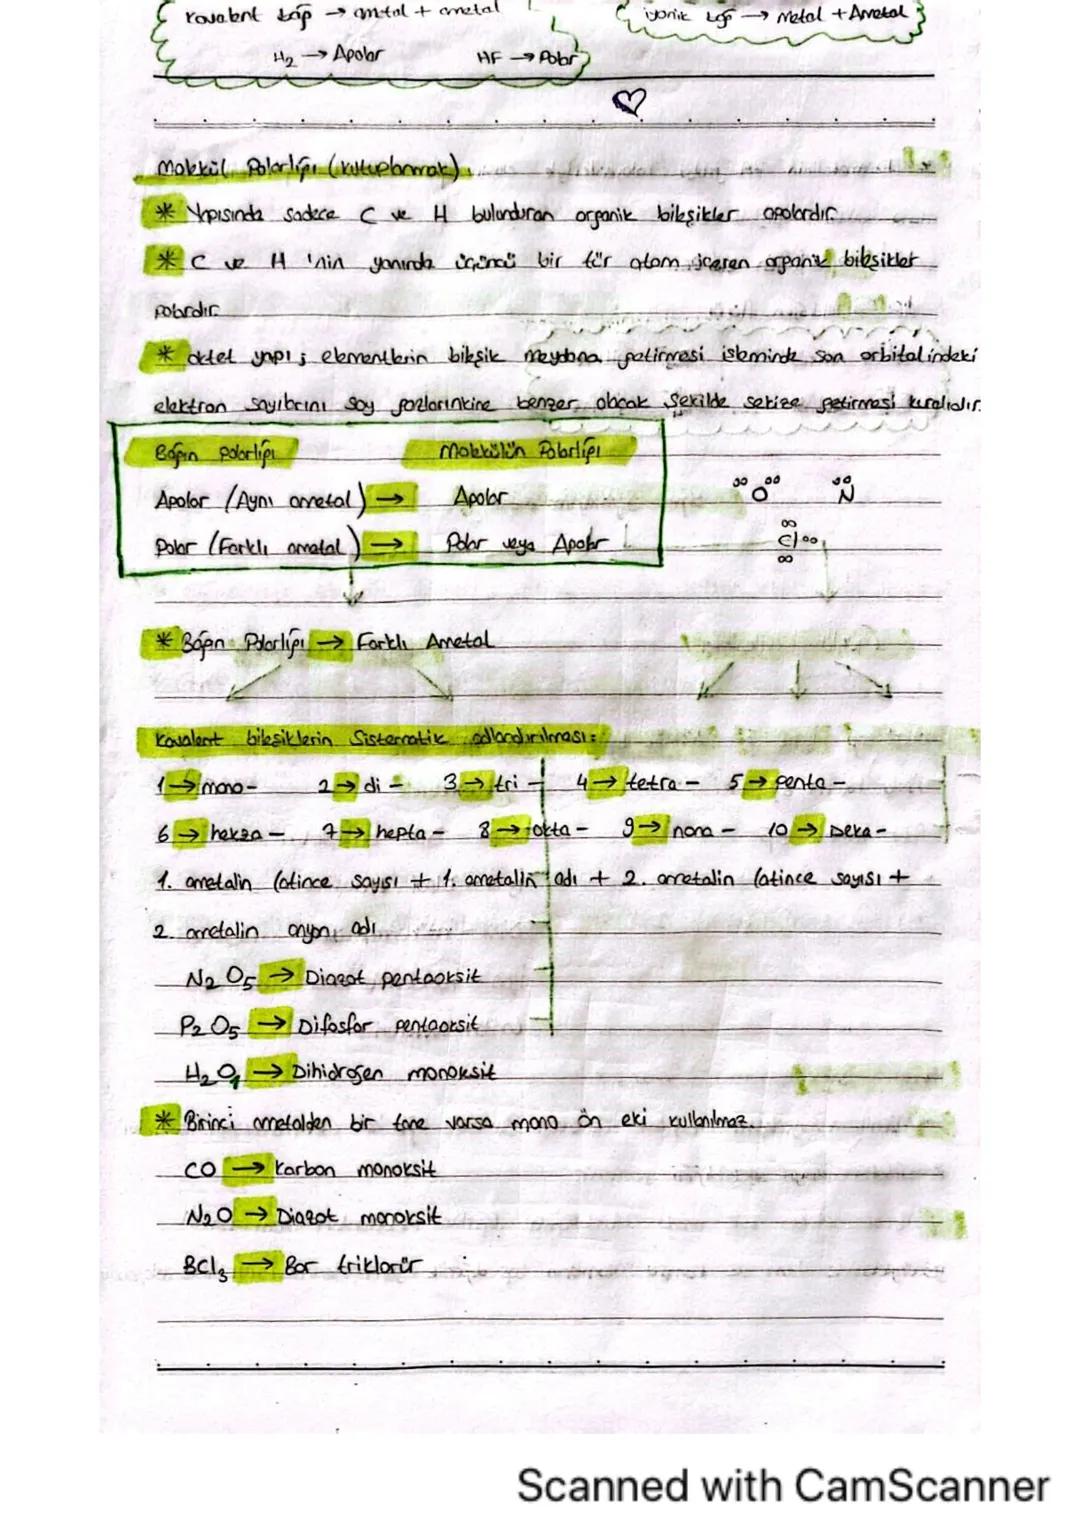 Kovalent bağ → ametal + ametal
İyonik bağ → Metal + Ametal
H2 → Apolar HF → Polar
Molekül Polarlığı (kutuplanmak)
* Yapısında sadece C ve H bulunduran organik bileşikler apolardır.
* C ve H 'nin yanında üçüncü bir tür atom içeren organik bileşikler
polardır.
* oktet yapı ; elementlerin bileşik meydana getirmesi işleminde son orbitalindeki
elektron sayılarını soy gazlarınkine benzer olacak şekilde sekize getirmesi kuralıdır.
Bağın polarlığı Molekülün Polarlığı
Apolar (Aynı ametal) → Apolar
Polar (Farklı ametal) → Polar veya Apolar
O N
Cl
* Bağın Polarlığı → Farklı Ametal
Kovalent bileşiklerin Sistematik adlandırılması:
1 → mono- 2 → di - 3 → tri - 4 → tetra - 5 → penta -
6 → hekza - 7 → hepta - 8 → okta - 9 → nona - 10 → Deka -
1. ametalin Latince sayısı + 1. ametalin adı + 2. ametalin Latince sayısı +
2. ametalin anyon adı
N2O5 → Diazot pentaoksit
P2O5 → Difosfor pentaoksit
H2O1 → Dihidrojen monoksit
* Birinci ametalden bir tane varsa mono ön eki kullanılmaz.
CO → Karbon monoksit
N2O → Diazot monoksit
BCl3 → Bor triklorür
Scanned with CamScanner